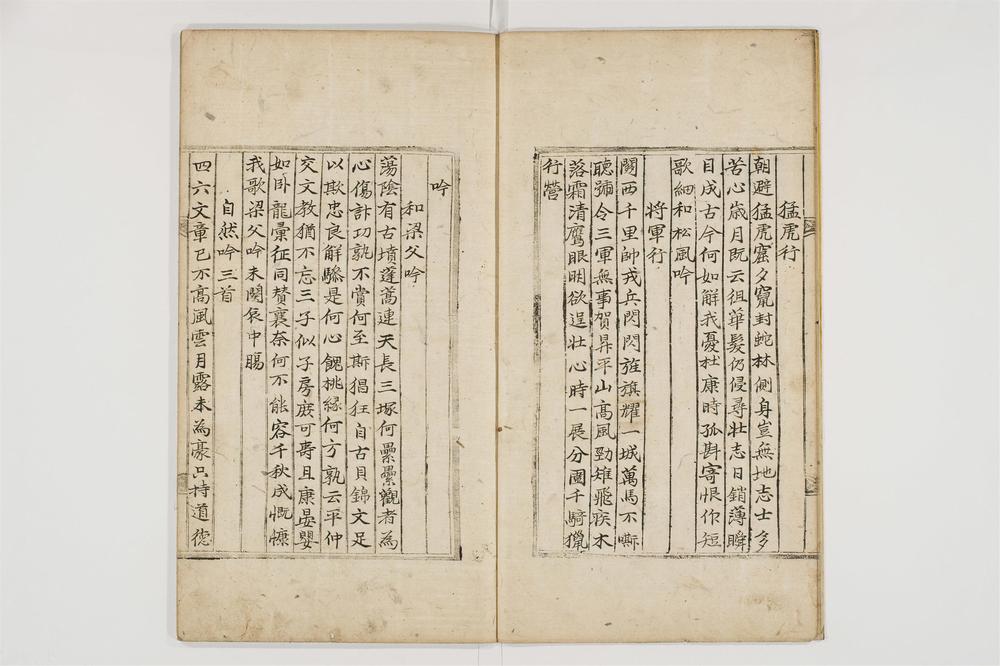 猛虎行
朝避猛虎窟夕竄封蛇林側身豈無地志士多
苦心歲月既云徂華髮仍侵尋壯志日銷薄瞬
目成古今何如解我憂杜康時孤斟寄恨作短
歌細和松風吟
將軍行
關西千里帥戎兵閃閃旌旗耀一城萬馬不嘶
聽號令三軍無事賀昇平山高風勁雉飛疾木
落霜清鷹眼明欲逞壯心時一展分圍千騎獵
行營
吟
和梁父吟
蕩陰有古墳蓬蒿連天長三塚何纍纍觀者為
心傷計功孰不賞何至斯猖狂自古貝錦文足
以欺忠良解驂是何心餽桃緣何方孰云平仲
交文教猶不忘三子似子房庶可壽且康晏嬰
如臥龍彙征同賛襄奈何不能容千秋成慨慷
我歌梁父吟未闋哀中膓
自然吟三首
四六文章已不高風雲月露未為豪只持道德